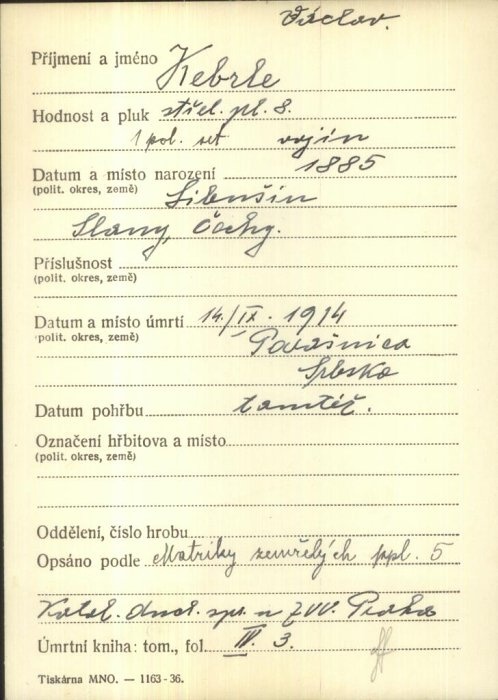 Václav.
Příjmení a jméno Kebrle
Hodnost a pluk střel. pl. 8.
1 pol. set vojín
Datum a místo narození 1885
(polit. okres, země) Libušín
Slaný, Čechy.
Příslušnost
(polit. okres, země)
Datum a místo úmrtí 14./IX. 1914
(polit. okres, země) Parašnica
Srbsko
Datum pohřbu tamtéž.
Označení hřbitova a místo
(polit. okres, země)
Oddělení, číslo hrobu
Opsáno podle Matriky zemřelých ppl. 5
Katol. duch. spr. u ZVV. Praha
Úmrtní kniha: tom., fol. IV. 3.
Tiskárna MNO. — 1163-36.